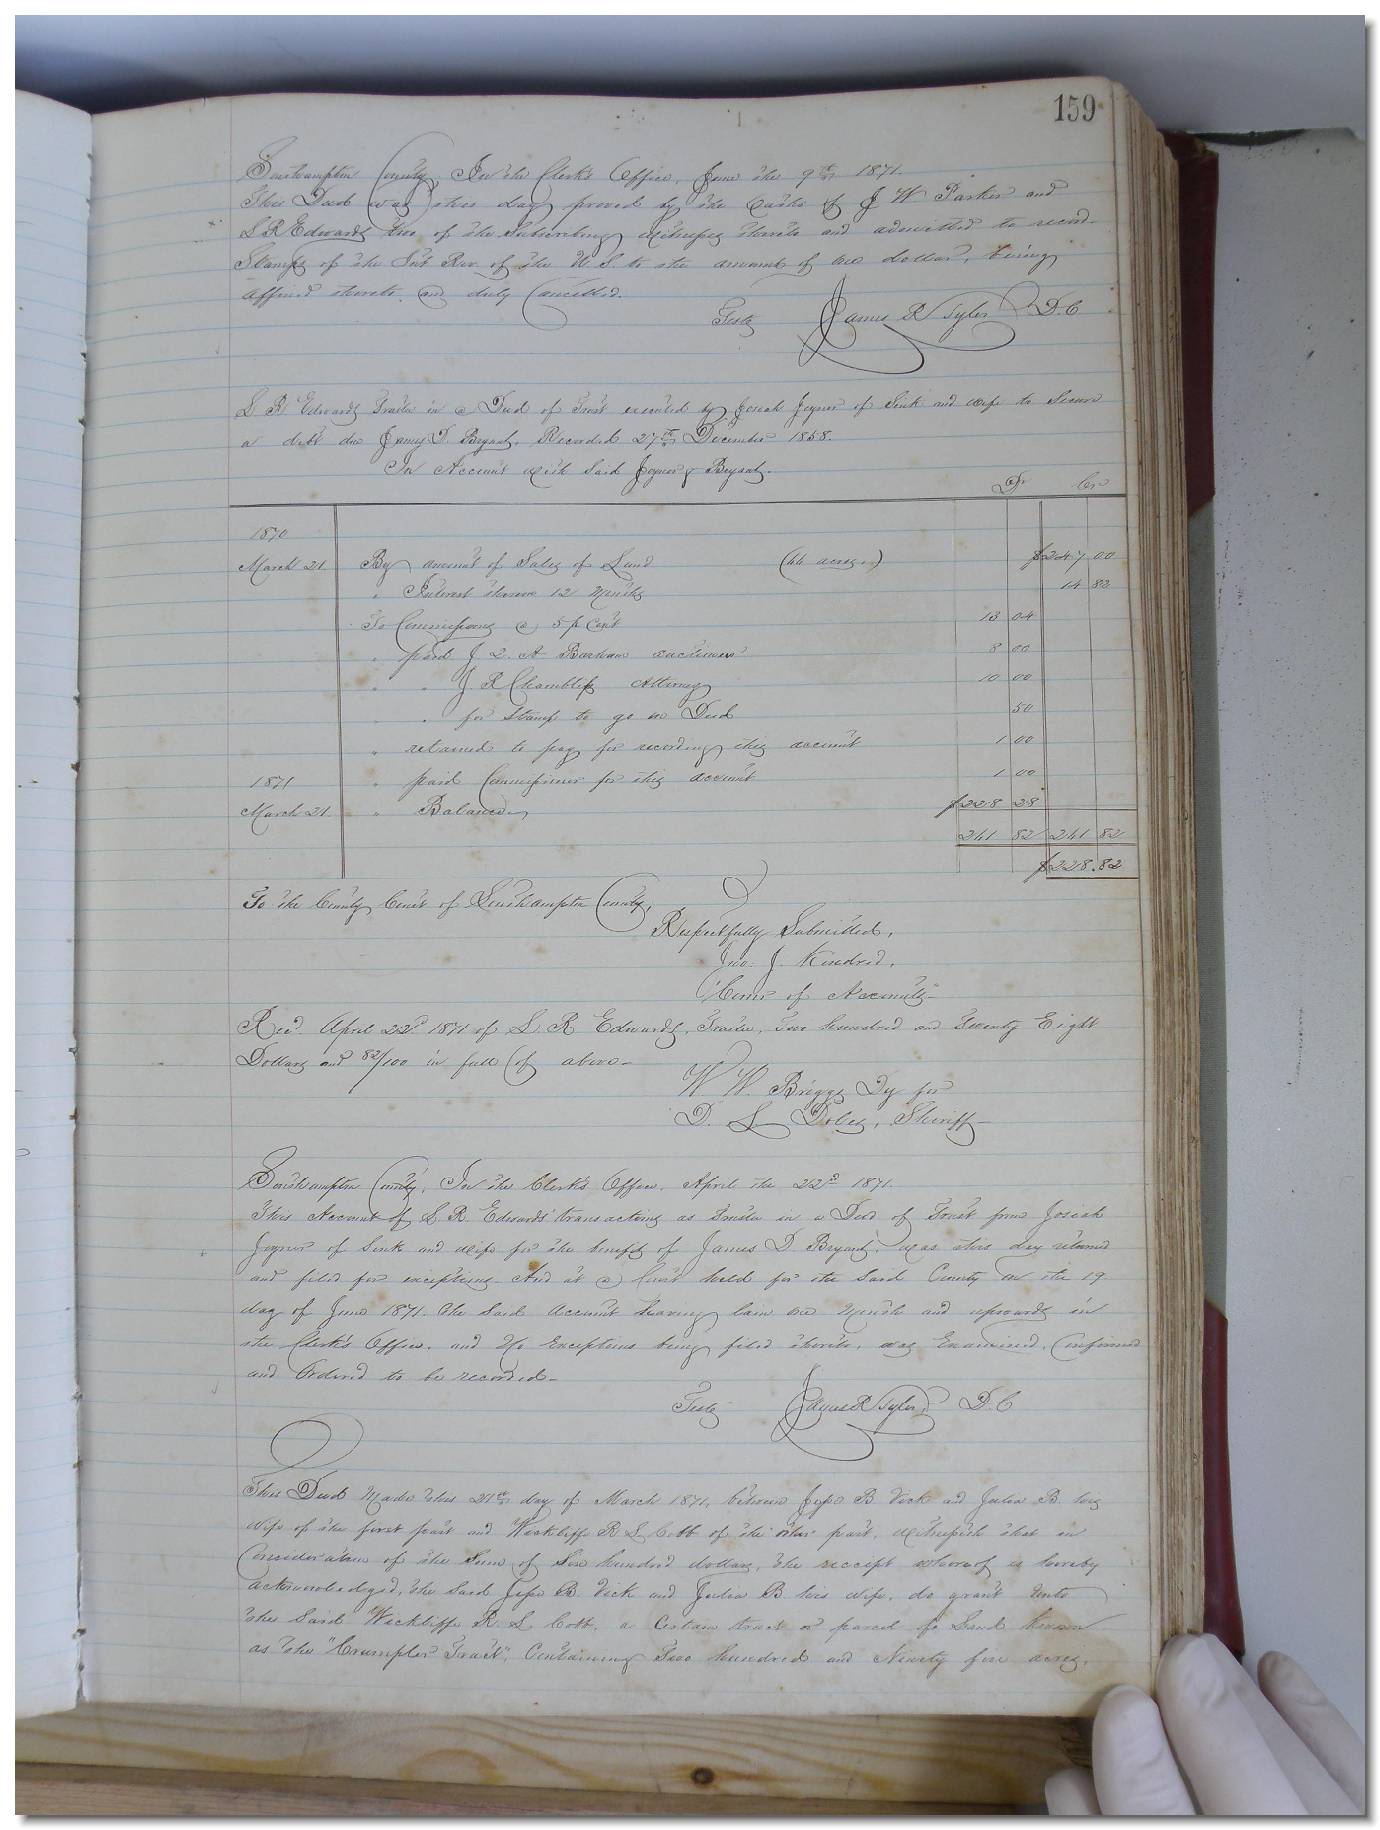 159
Southampton County, In the Clerk's Office, June the 9th 1871.
This Deed was this day proved by the oaths of J W Parker and
S R Edwards two of the subscribing witnesses thereto and admitted to record.
Stamps of the Int Rev. of the U. S. to the amount of one dollar, being
affixed thereto, and duly Cancelled.
Teste James R Tyler D.C
S R Edwards Trustee in a Deed of Trust executed by Josiah Joyner of Sink and wife to Secure
a debt due James D. Bryant. Recorded 27th December 1858.
In Account with said Joyner & Bryant.
Dr Cr
1870
March 21 By amount of Sales of Land (44 acres) $247 00
" Interest thereon 12 Months 14 82
To Commissions @ 5 p Cent 13 04
" paid J. Q. A Barham 8 00
" " J R Chambliss Attorney 10 00
" for Stamp to go on Deed 50
" retained to pay for recording this account 1 00
1871 " paid Commissioner for this account 1 00
March 21. " Balance $228 28
261 82 261 82
$228.82
To the County Court of Southampton County,
Respectfully Submitted,
Jno. J. Kindred,
Comr of Accounts
Recd. April 22d 1871 of S. R Edwards, Trustee, Two hundred and Twenty Eight
Dollars and 82/100 in full of above
W W. Briggs Dy for
D. S. Dobey, Sheriff
Southampton County, In the Clerk's Office. April the 22d 1871
This Account of S. R. Edwards' transactions as Trustee in a Deed of Trust from Josiah
Joyner of Sink and wife for the benefit of James D. Bryant, was this day returned
and filed for exceptions. And at a Court held for the said County on the 19
day of June 1871. The said Account having lain one Month and upwards in
the Clerk's Office, and No Exceptions being filed thereto, was Examined, Confirmed
and Ordered to be recorded
Teste James R Tyler, D.C
This Deed Made this 21st day of March 1871, between Jesse B Vick and Julia B. his
wife of the first part and Wickliffe R S Cobb of the other part, witnesseth that in
Consideration of the Sum of Six hundred dollars, the receipt whereof is hereby
acknowledged, the Said Jesse B. Vick and Julia B. his wife, do grant unto
the Said Wickliffe R. S. Cobb. a Certain tract or parcel of Land known
as the "Crumpler Tract", Containing Two hundred and Ninety five acres,